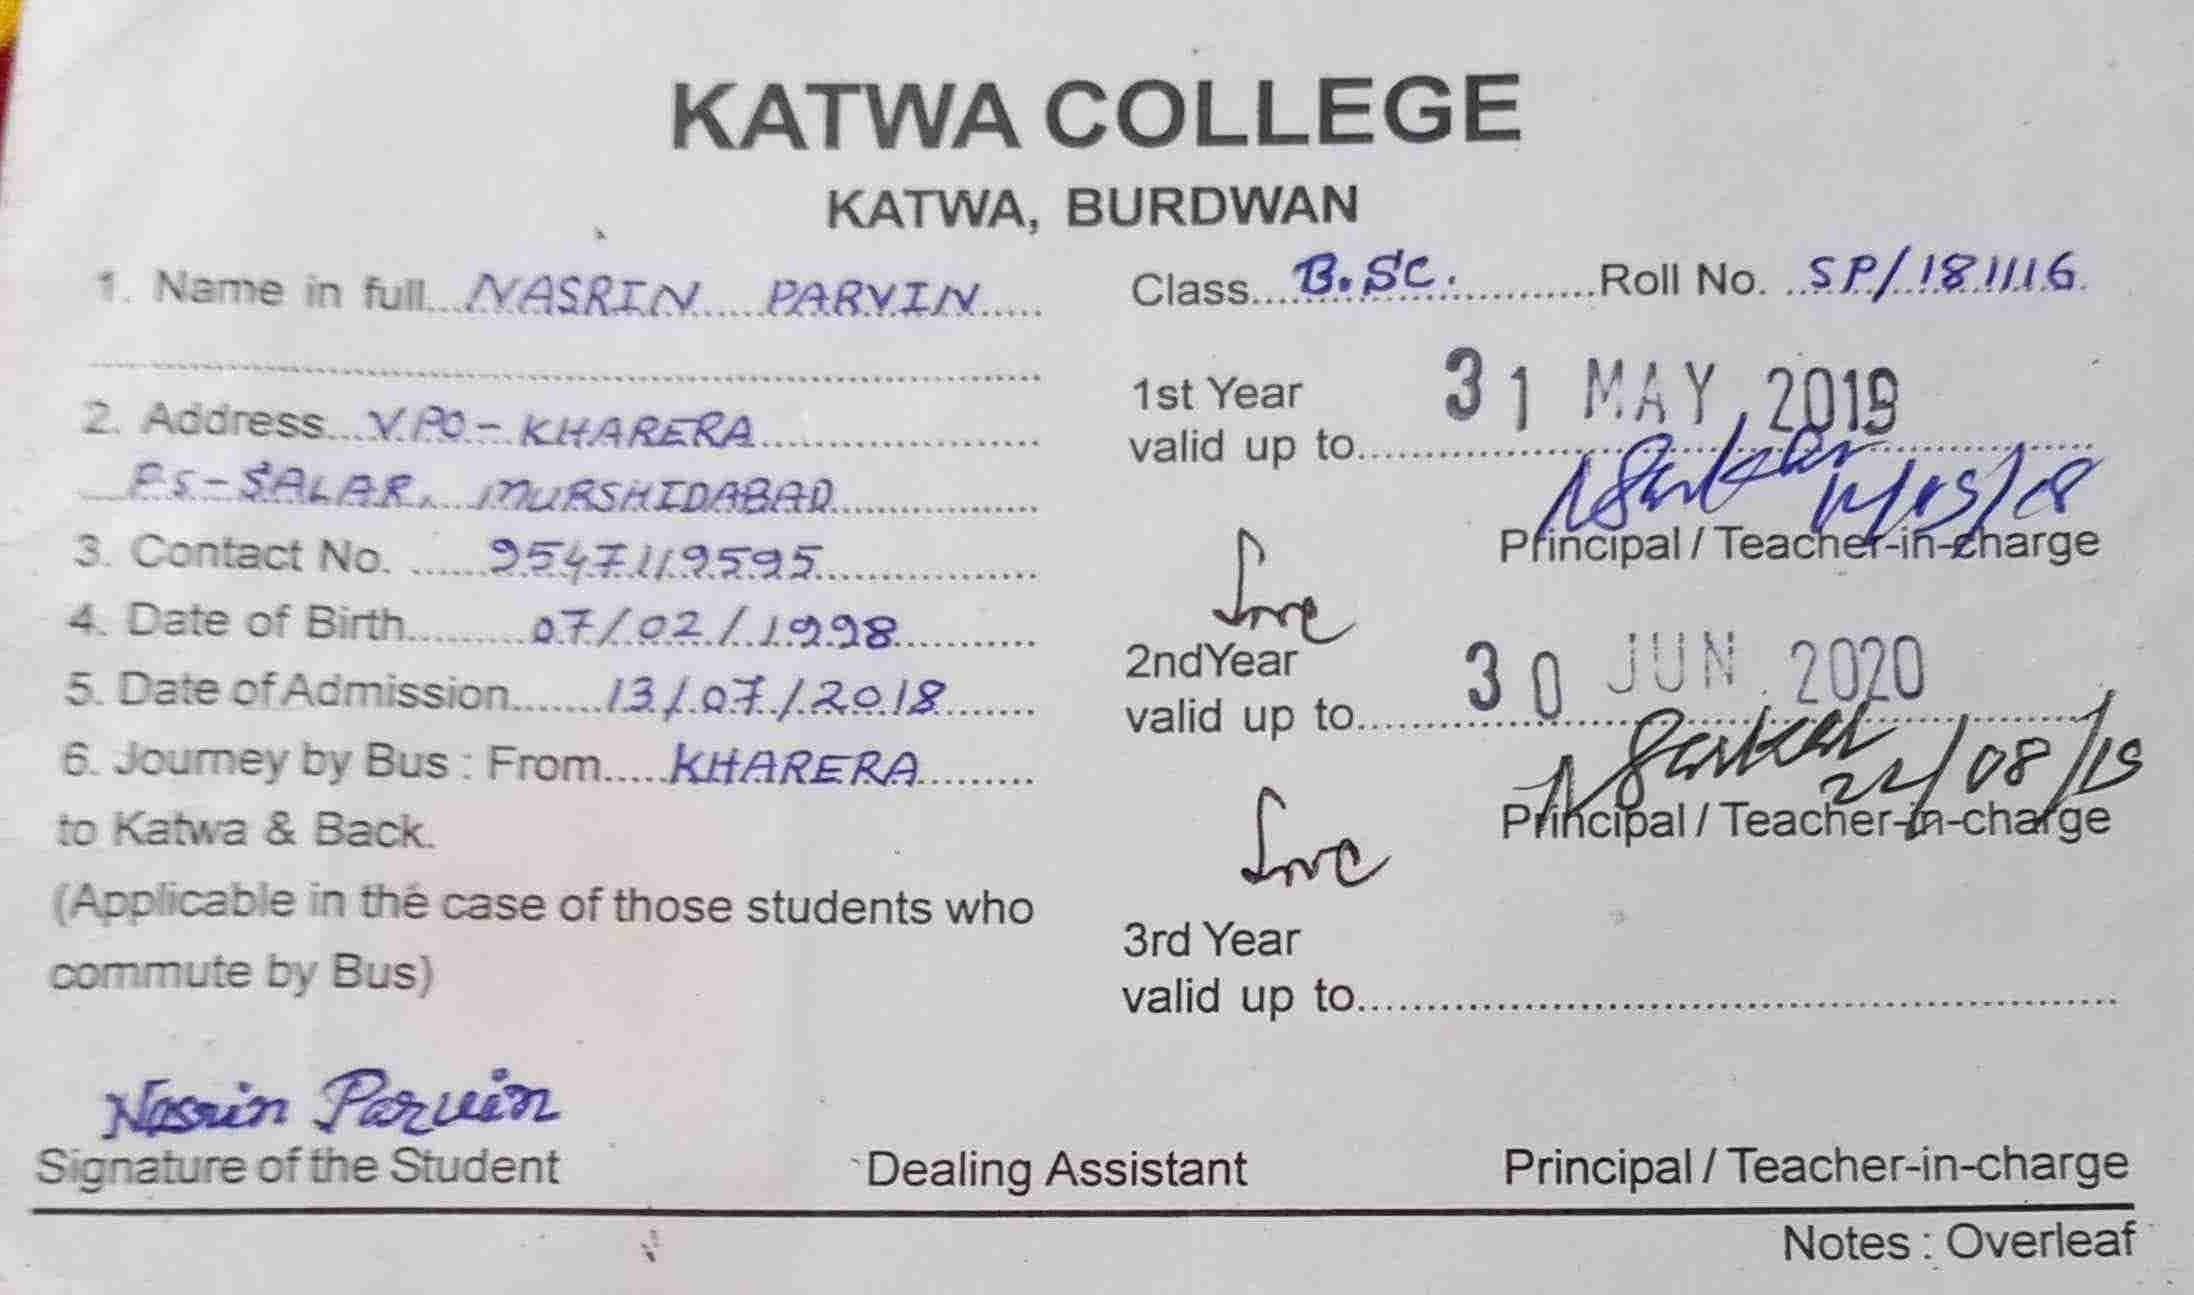 KATWA COLLEGE
KATWA, BURDWAN
1. Name in full NASRIN PARVIN
2. Address V.PO - KHARERA
P.S - SALAR, MURSHIDABAD
3. Contact No. 9547119595
4. Date of Birth 07/02/1998
5. Date of Admission 13/07/2018
6. Journey by Bus : From KHARERA
to Katwa & Back.
(Applicable in the case of those students who
commute by Bus)
Nasrin Parvin
Signature of the Student
Class B.Sc. Roll No. SP/181116
1st Year 31 MAY 2019
valid up to
Principal / Teacher-in-charge
2ndYear 30 JUN 2020
valid up to
22/08/19
Principal / Teacher-in-charge
3rd Year
valid up to
Dealing Assistant
Principal / Teacher-in-charge
Notes : Overleaf